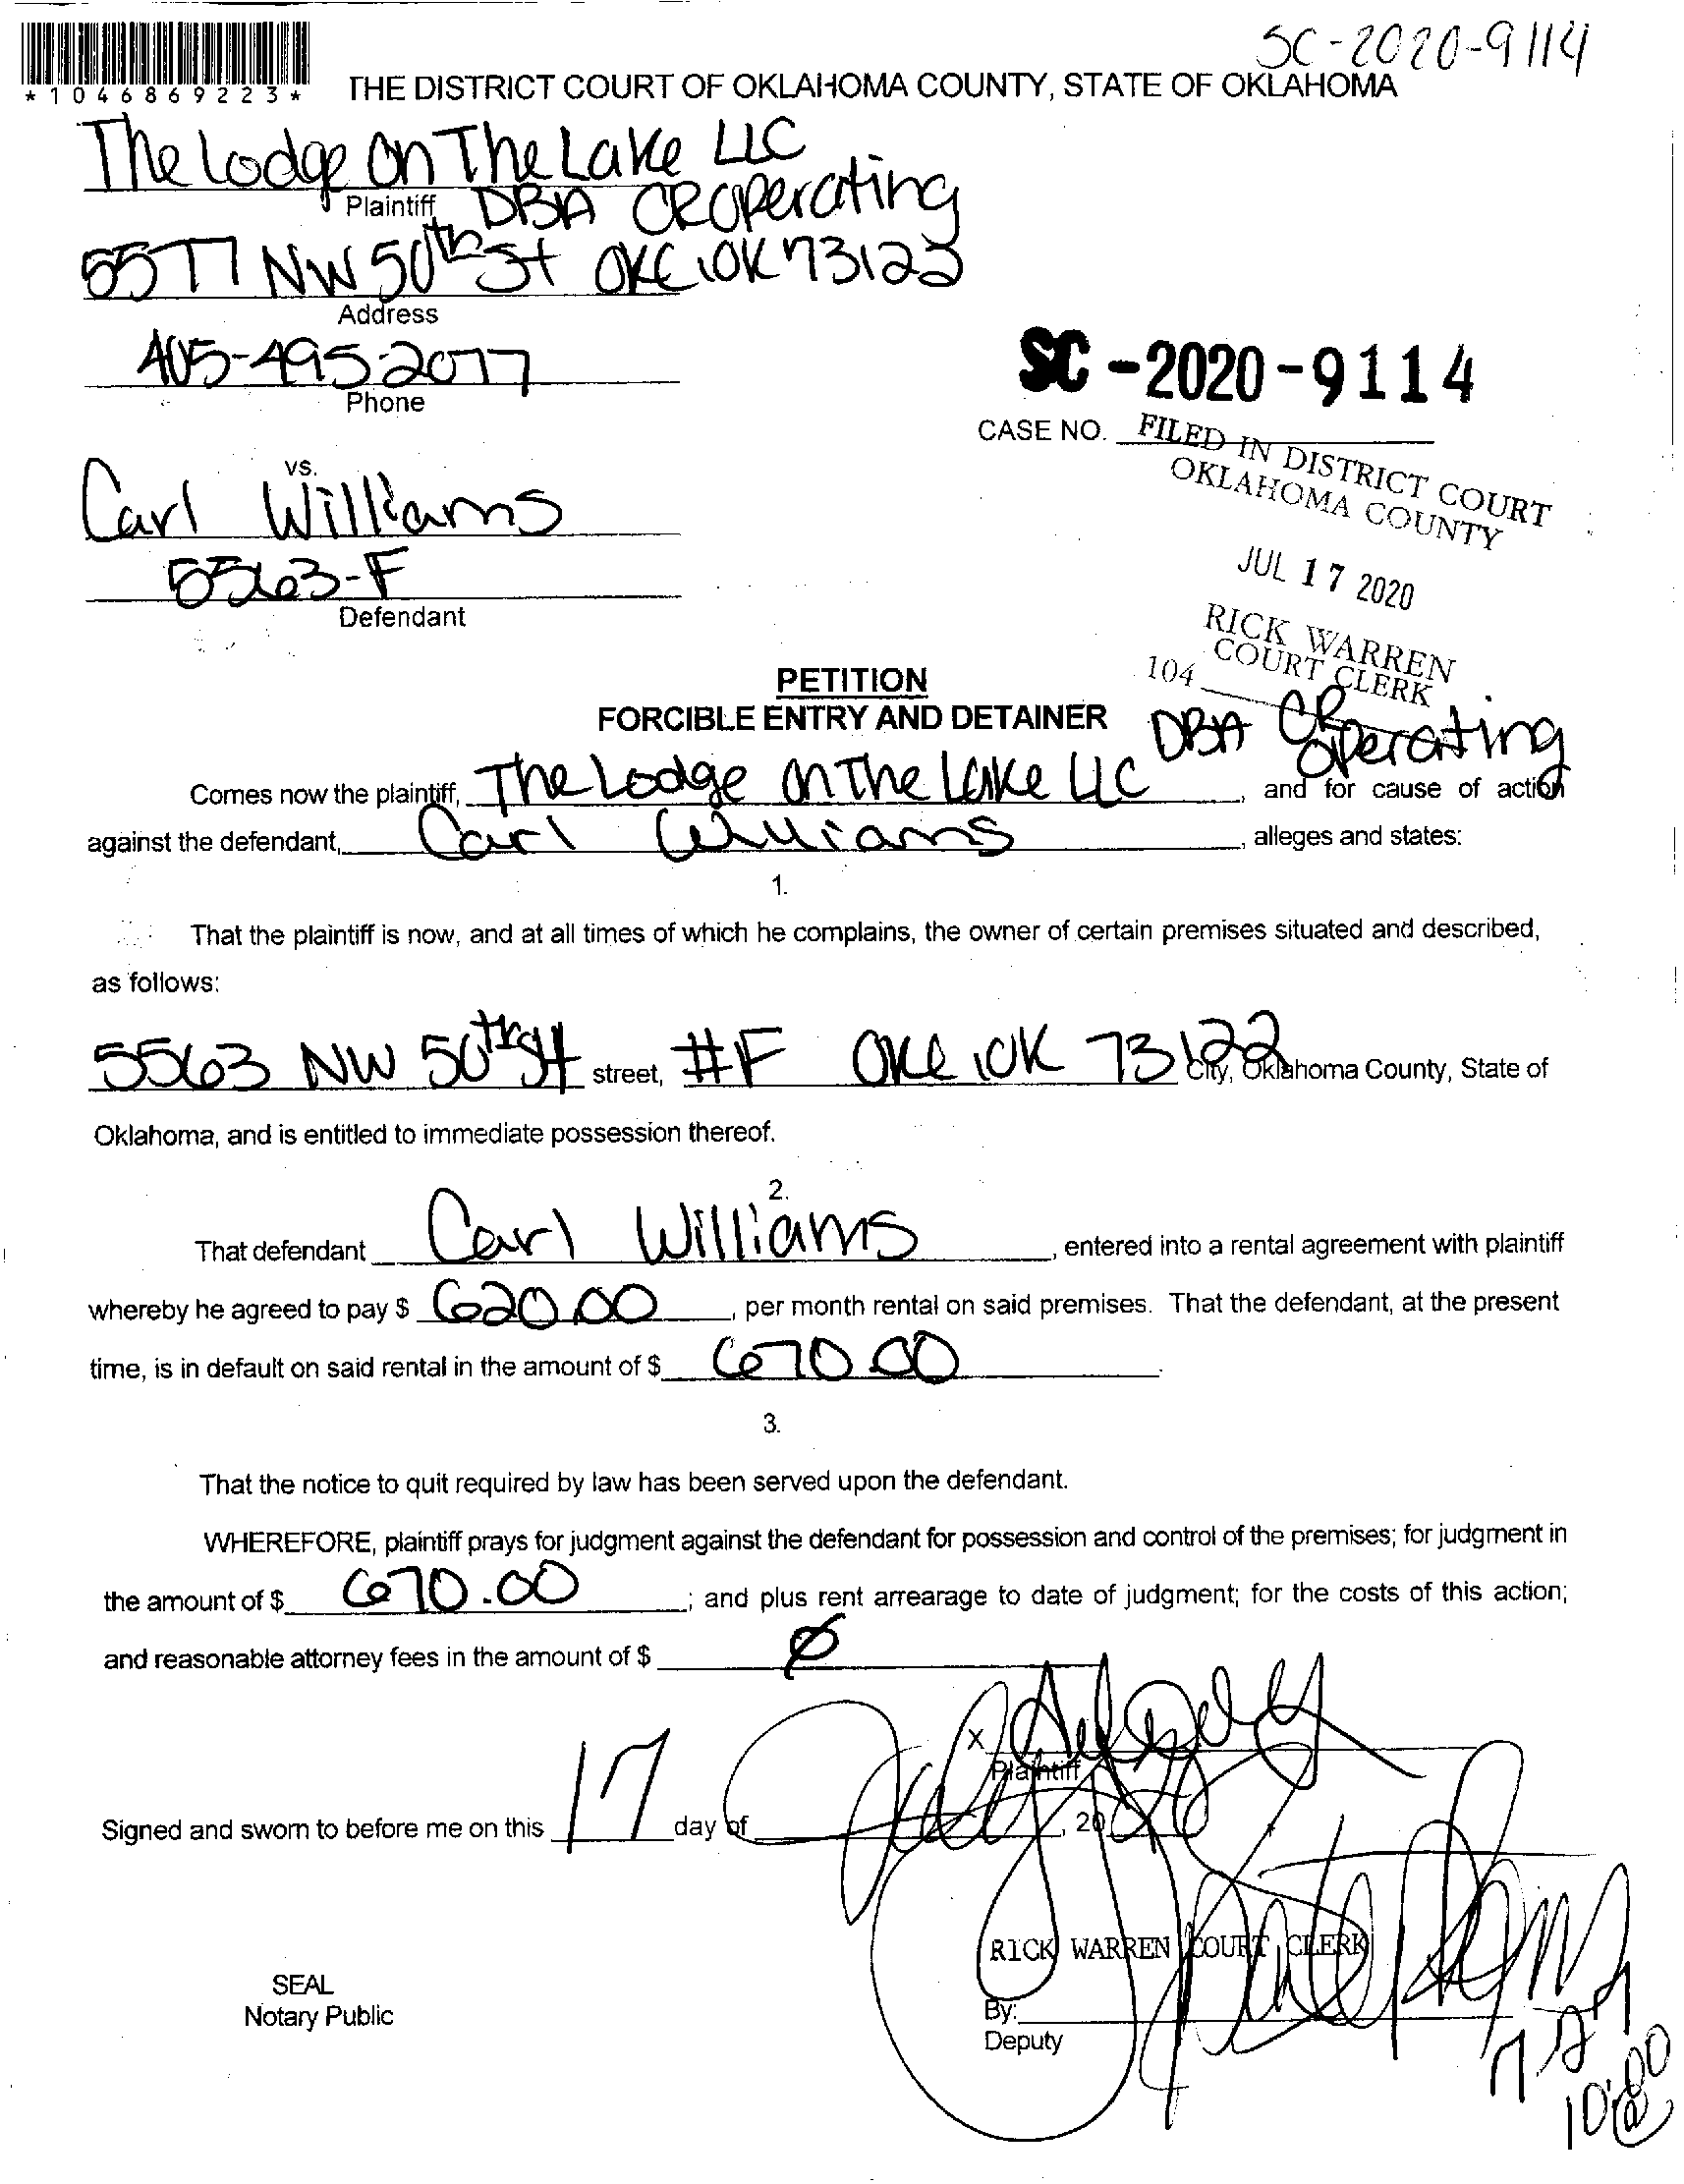 SC-2020-9114
*1046869223*
THE DISTRICT COURT OF OKLAHOMA COUNTY, STATE OF OKLAHOMA
The Lodge On The Lake LLC
Plaintiff DBA CROperating
5577 NW 50th St OKC, OK 73123
Address
405-495-2077
Phone
SC-2020-9114
CASE NO.
FILED IN DISTRICT COURT
OKLAHOMA COUNTY
JUL 17 2020
RICK WARREN
COURT CLERK
104
vs.
Carl Williams
5563-F
Defendant
PETITION
FORCIBLE ENTRY AND DETAINER
DBA CR Operating
Comes now the plaintiff, The Lodge On The Lake LLC, and for cause of action
against the defendant, Carl Williams, alleges and states:
1.
That the plaintiff is now, and at all times of which he complains, the owner of certain premises situated and described,
as follows:
5563 NW 50th St street, #F OKC, OK 73122 City, Oklahoma County, State of
Oklahoma, and is entitled to immediate possession thereof.
2.
That defendant Carl Williams, entered into a rental agreement with plaintiff
whereby he agreed to pay $ 620.00, per month rental on said premises. That the defendant, at the present
time, is in default on said rental in the amount of $ 670.00.
3.
That the notice to quit required by law has been served upon the defendant.
WHEREFORE, plaintiff prays for judgment against the defendant for possession and control of the premises; for judgment in
the amount of $ 670.00; and plus rent arrearage to date of judgment; for the costs of this action;
and reasonable attorney fees in the amount of $ Ø
X
Plaintiff
Signed and sworn to before me on this 17 day of July, 2020
RICK WARREN COURT CLERK
SEAL
Notary Public
By:
Deputy
10:00